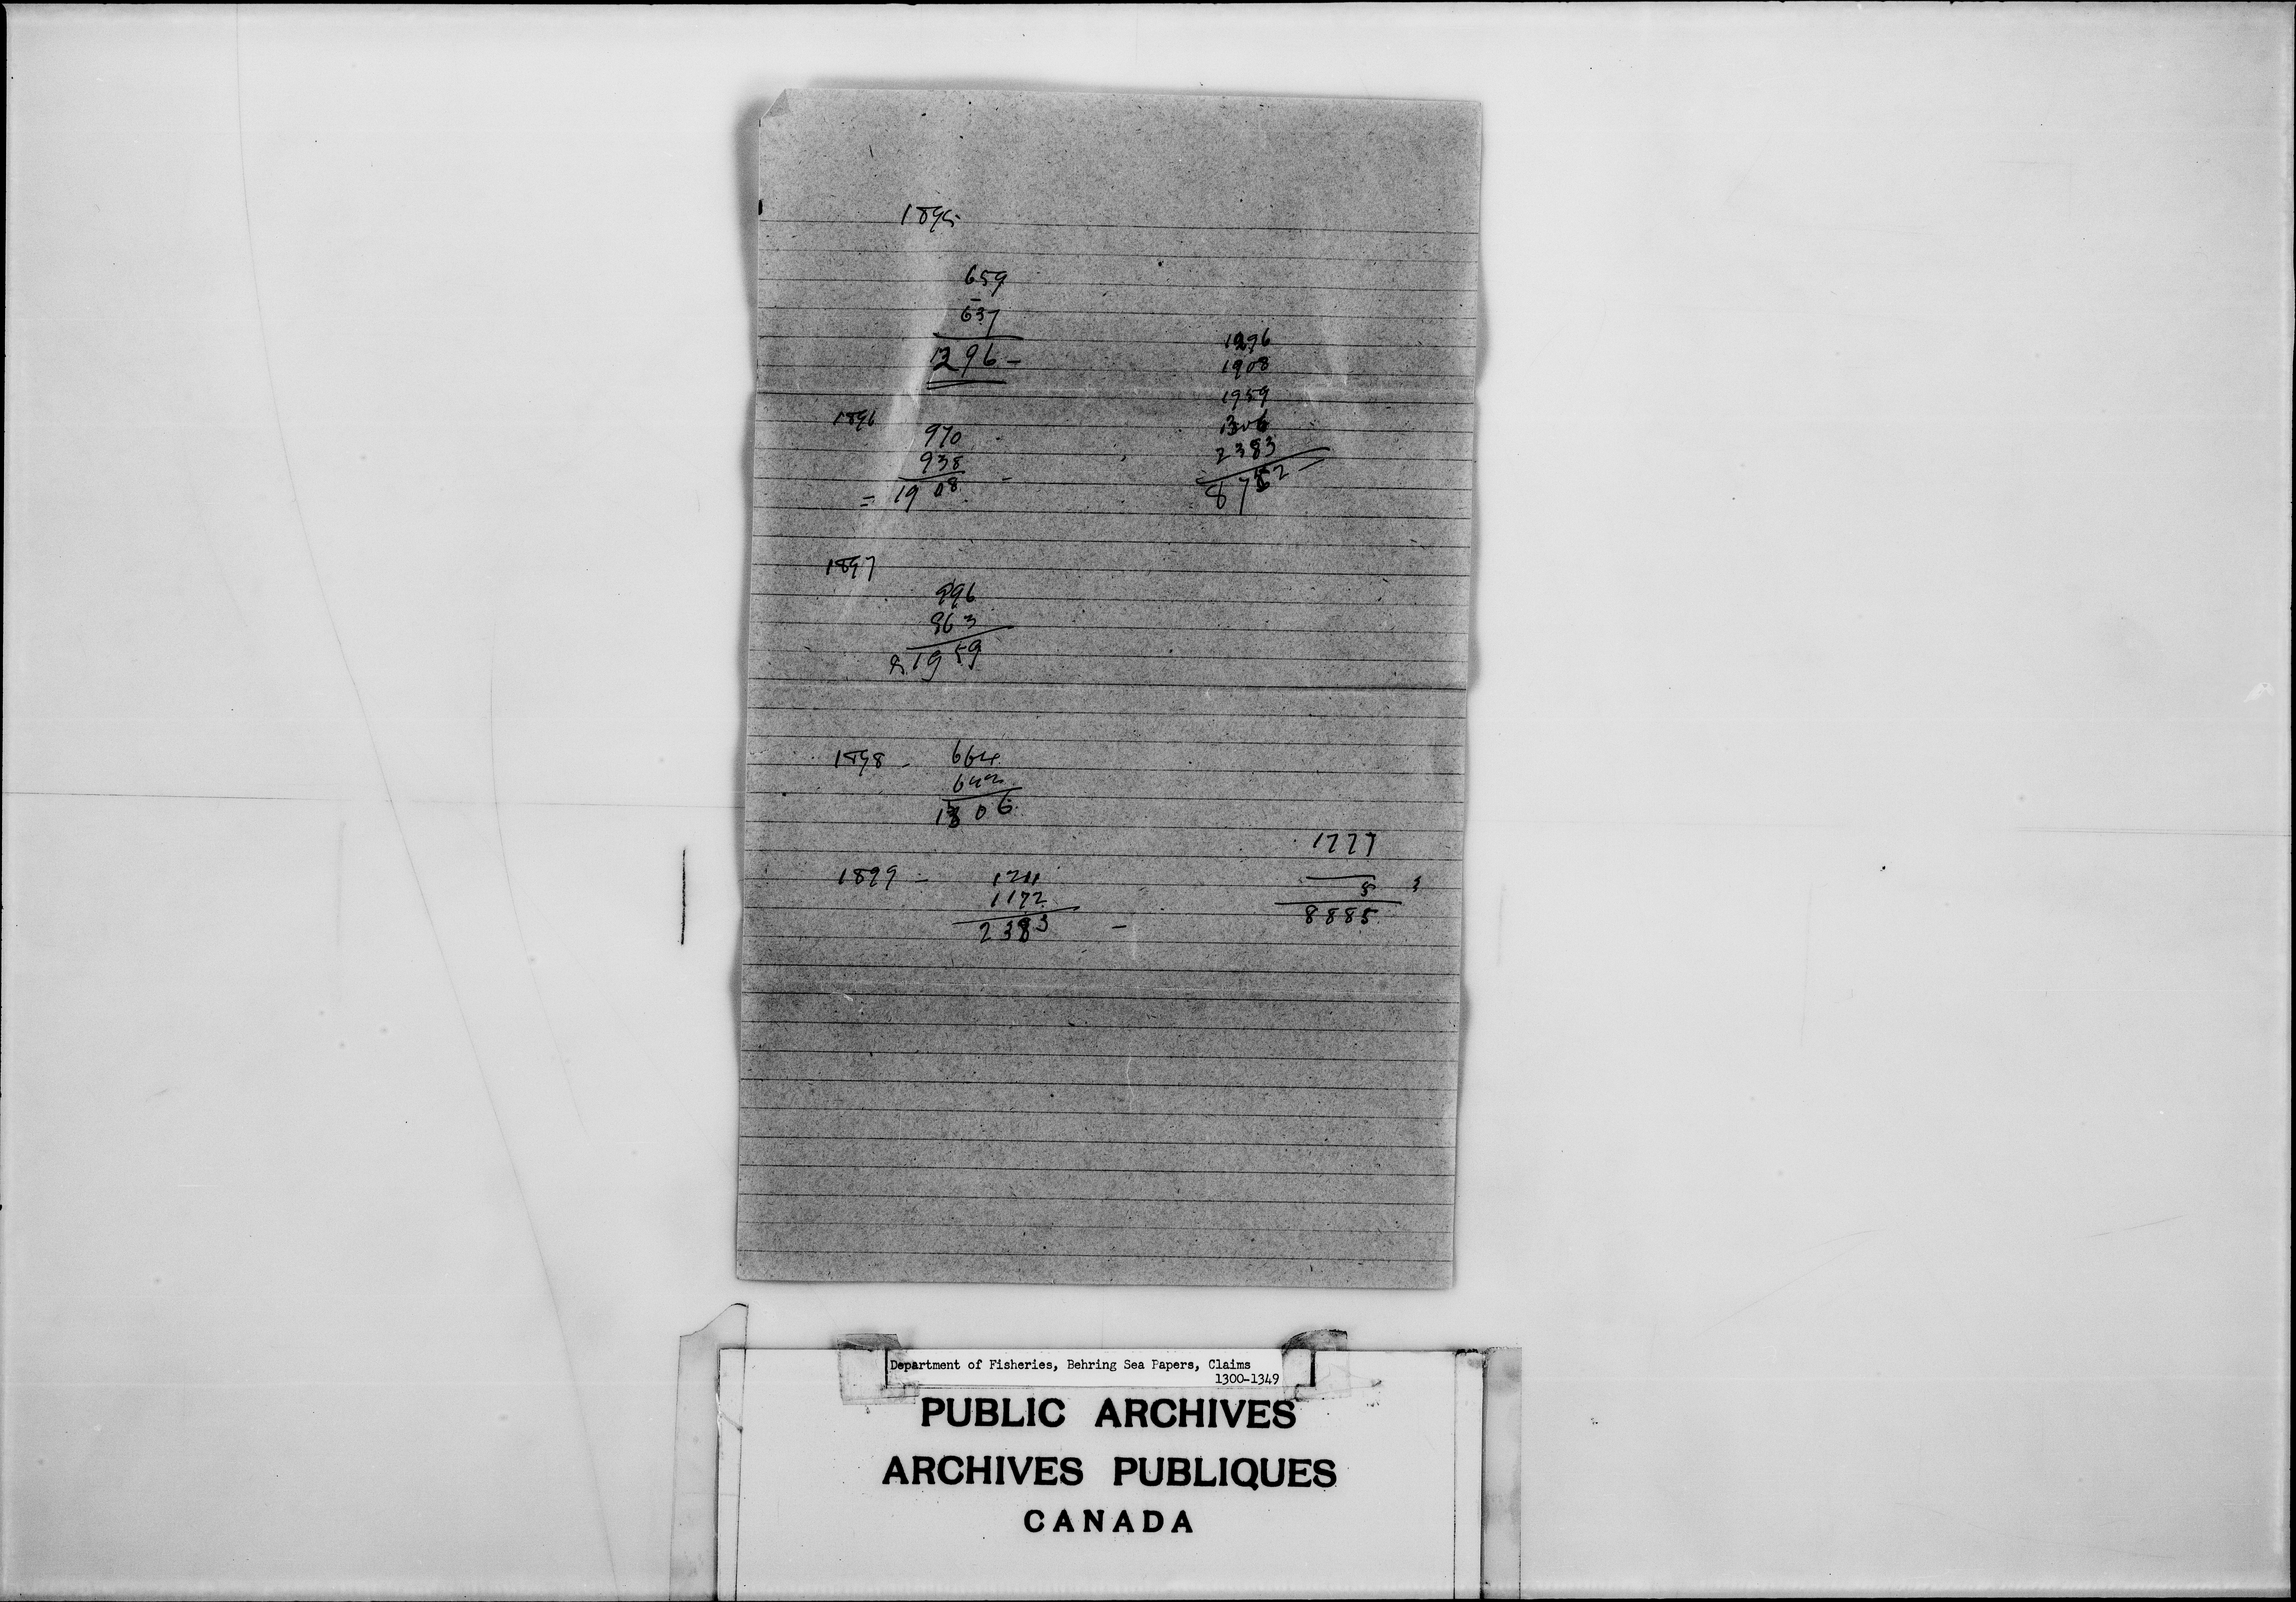 1895
659
637
1296 -
1896
970
938
= 1908 -
1897
996
963
1959
1898 -
664
642
1306
1899 -
1211
1172
2383 -
1296
1908
1959
1306
2383
8752
1777
5
8885
Department of Fisheries, Behring Sea Papers, Claims
1300-1349
PUBLIC ARCHIVES
ARCHIVES PUBLIQUES
CANADA